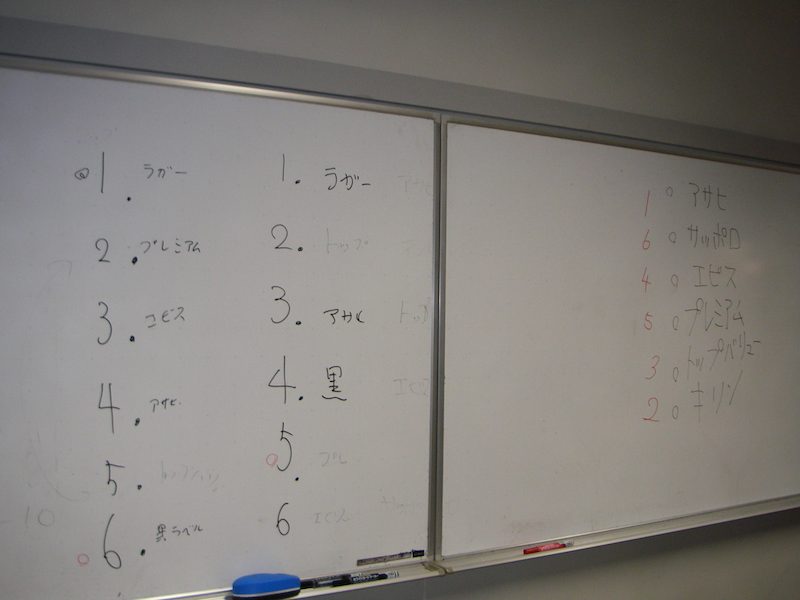 1. ラガー
2. プレミアム
3. エビス
4. アサヒ
5.
6. 黒ラベル
1. ラガー
2. トップ
3. アサヒ
4. 黒
5. プレ
6 エビス
1 ○ アサヒ
6 ○ サッポロ
4 ○ エビス
5 ○ プレミアム
3 ○ トップバリュー
2 ○ キリン